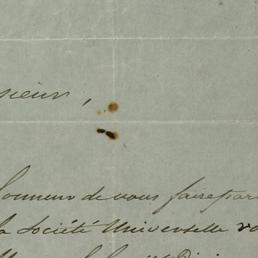 sieur,
honneur de vous faire part
la Société Universelle vo